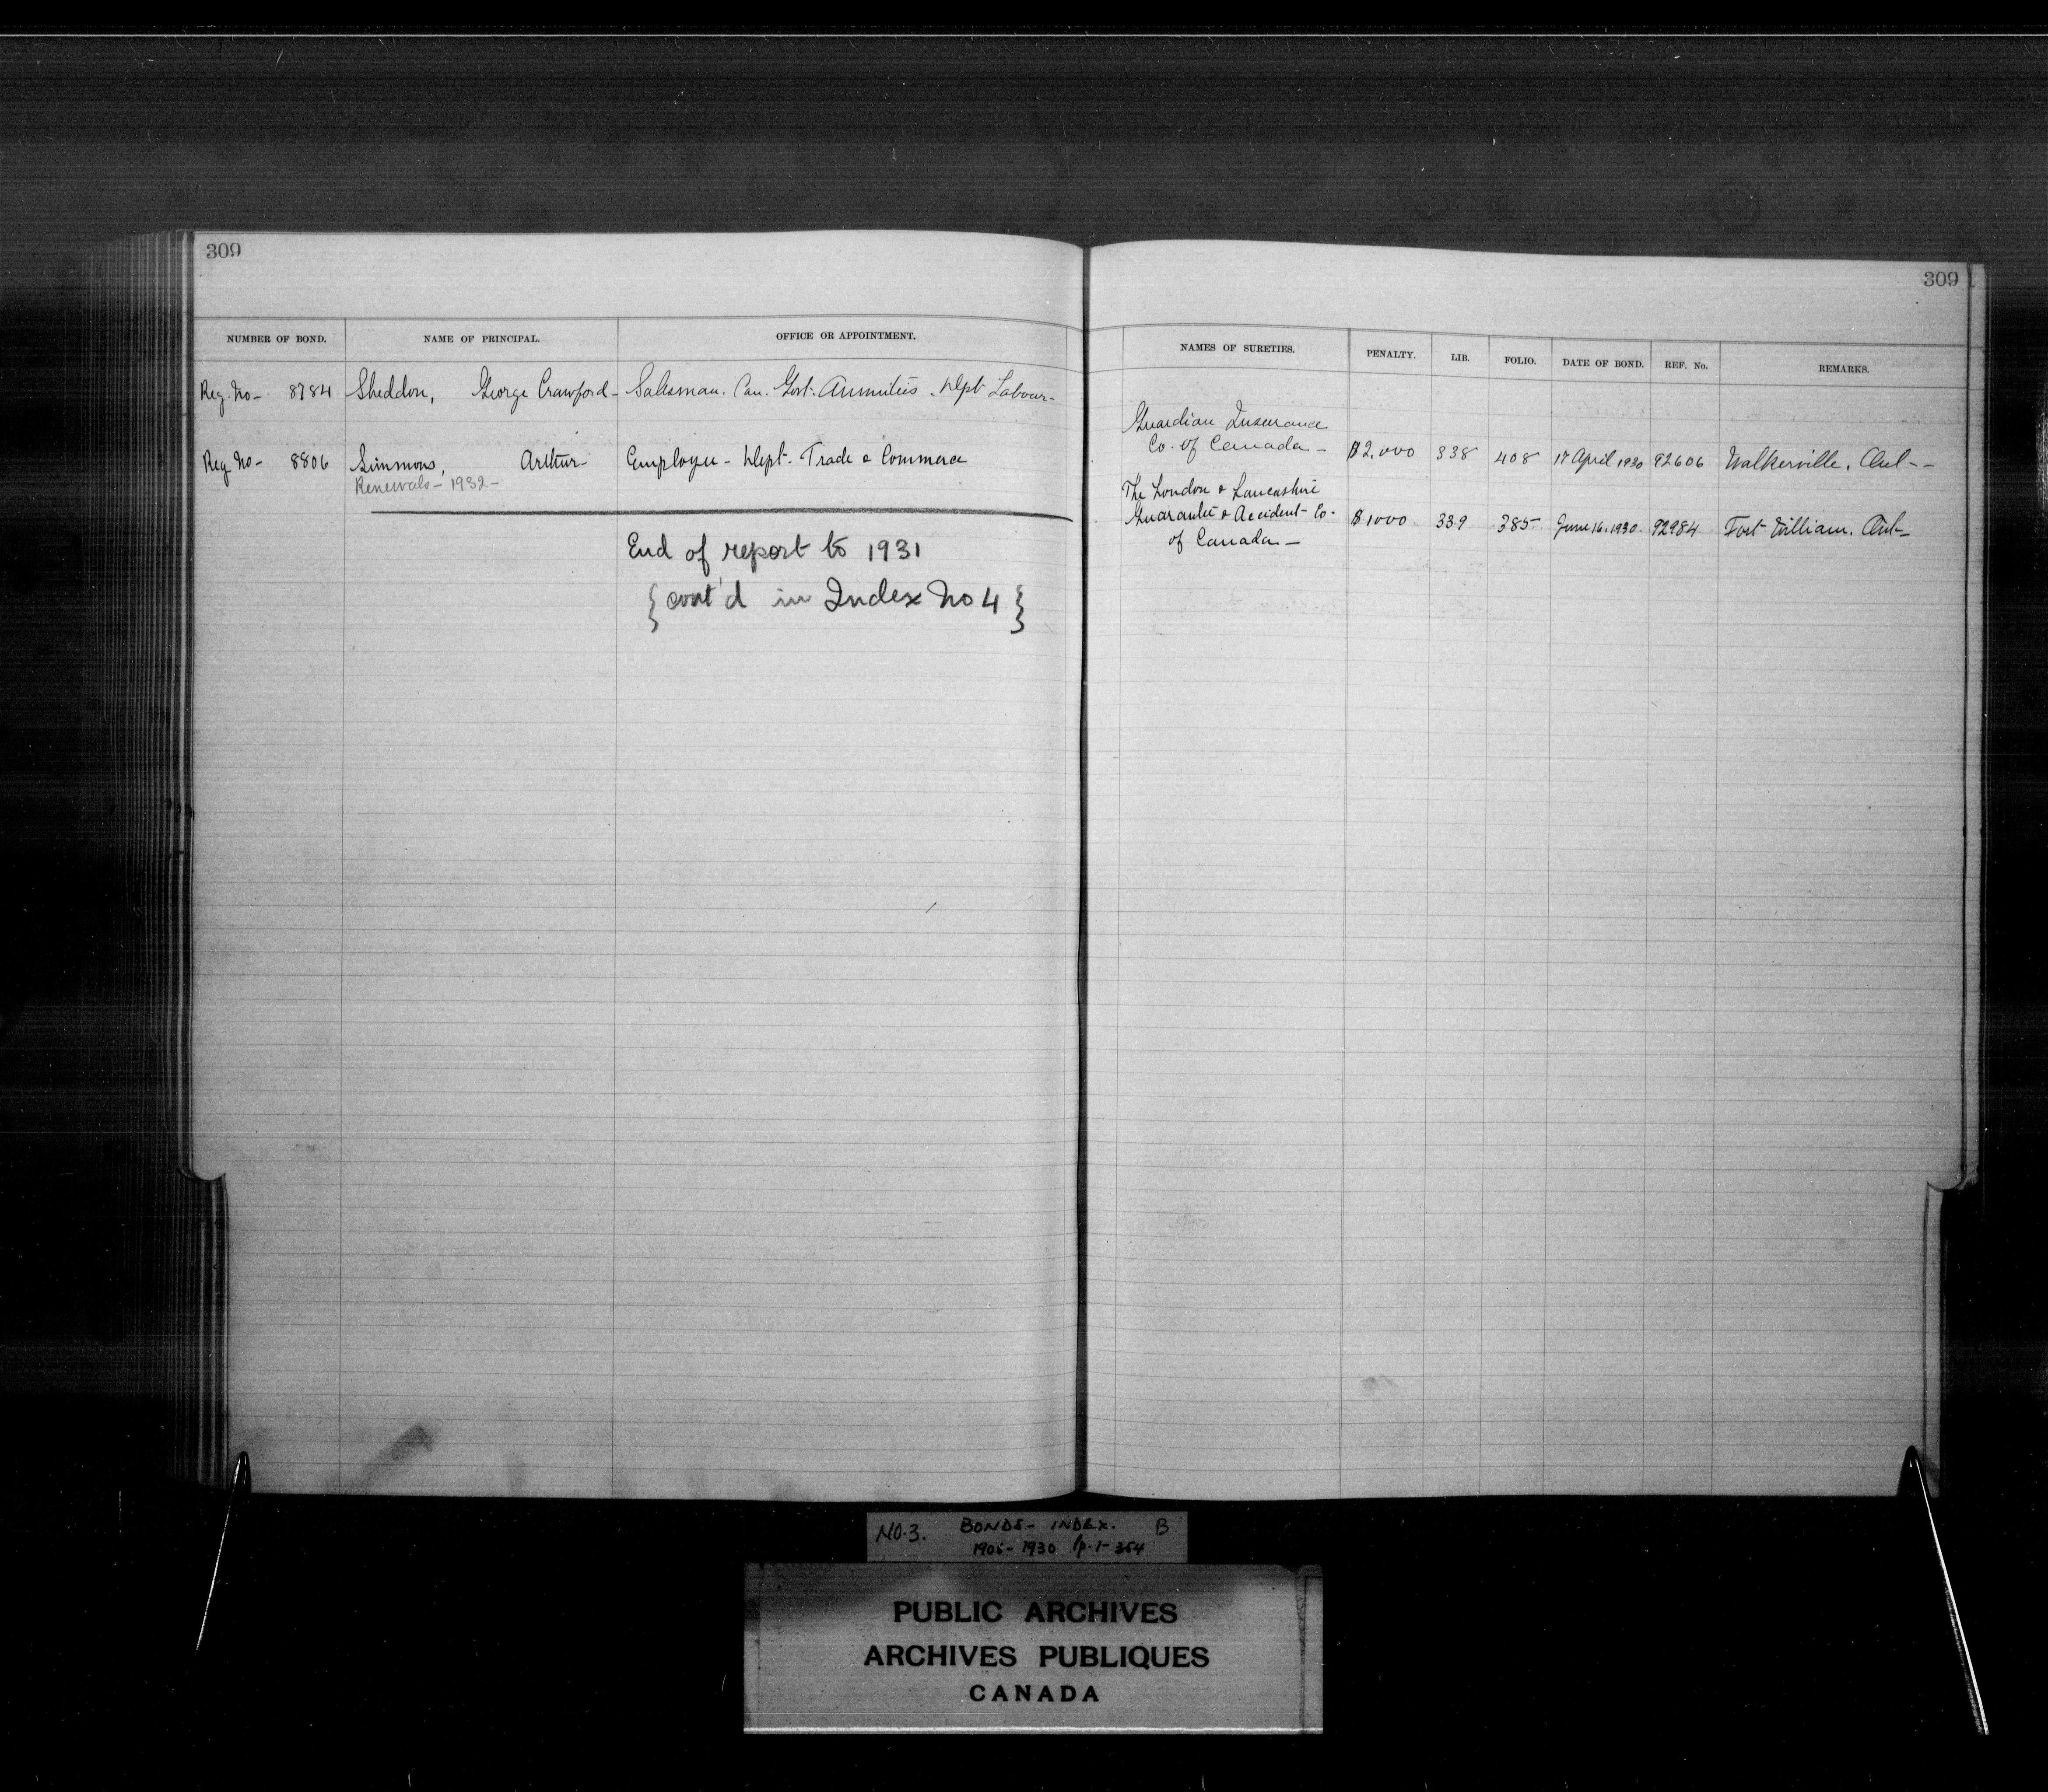 309
309
NUMBER OF BOND. NAME OF PRINCIPAL. OFFICE OR APPOINTMENT. NAMES OF SURETIES. PENALTY. LIB. FOLIO. DATE OF BOND. REF. No. REMARKS.
Reg. No- 8784 Sheddon, George Crawford- Salesman. Can. Govt. Annuities. Dept Labour-
Guardian Insurance
Co. of Canada - $2,000 338 408 17 April 1930 92606 Walkerville, Ont--
Reg No- 8806 Simmons, Arthur- Employee- Dept. Trade & Commerce
Renewals- 1932-
The London & Lancashire
Guarantee & Accident Co-
of Canada- $1000 339 385 June 16, 1930 92984 Fort William, Ont-
End of report to 1931
{cont'd in Index No 4}
NO. 3. BONDS- INDEX. B
1905-1930 p. 1-354
PUBLIC ARCHIVES
ARCHIVES PUBLIQUES
CANADA